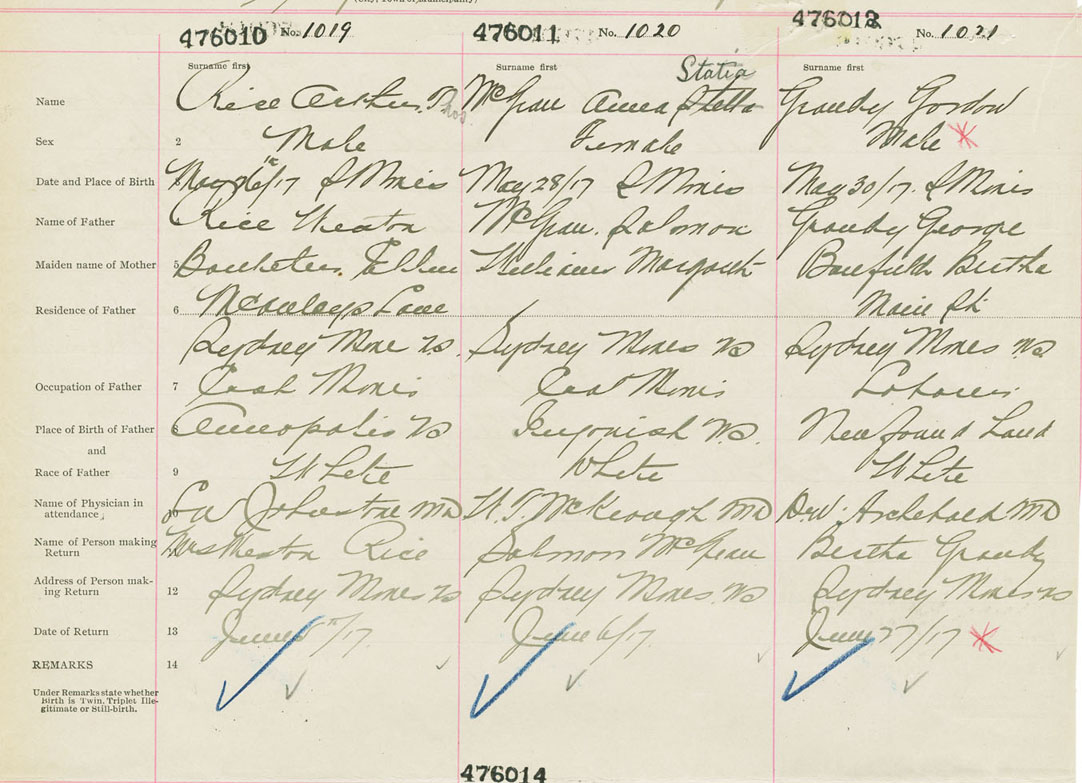 (City, Town or Municipality)
476010 No. 1019 476011 No. 1020 476012 No. 1021
Surname first Surname first Statia Surname first
Name Rice Arthur Thos. McGean Anna Stella Grandy Gordon
Sex 2 Male Female Male
Date and Place of Birth May 16/17 S Mines May 28/17 S Mines May 30/17. S Mines
Name of Father Rice Weston McGean. Salomon Grandy George
Maiden name of Mother 5 Ellen Williams Margaret Barefield Bertha
Residence of Father 6 McAuleys Lane Main St
Sydney Mine NS. Sydney Mines NS Sydney Mines NS
Occupation of Father 7 Coal Miner Coal Miner Laborer
Place of Birth of Father 8 Annopolis NS Ingonish NS. Newfound Land
and
Race of Father 9 White White White
Name of Physician in
attendance 10 Johnstone MD W. J McKeough MD Dr W. Archibald MD
Name of Person making
Return 11 Mrs Weston Rice Salomon McGean Bertha Grandy
Address of Person mak-
ing Return 12 Sydney Mines NS Sydney Mines. NS Sydney Mines NS
Date of Return 13 June /17. June 6/17. June 27/17
REMARKS 14
Under Remarks state whether
Birth is Twin, Triplet Ille-
gitimate or Still-birth.
476014